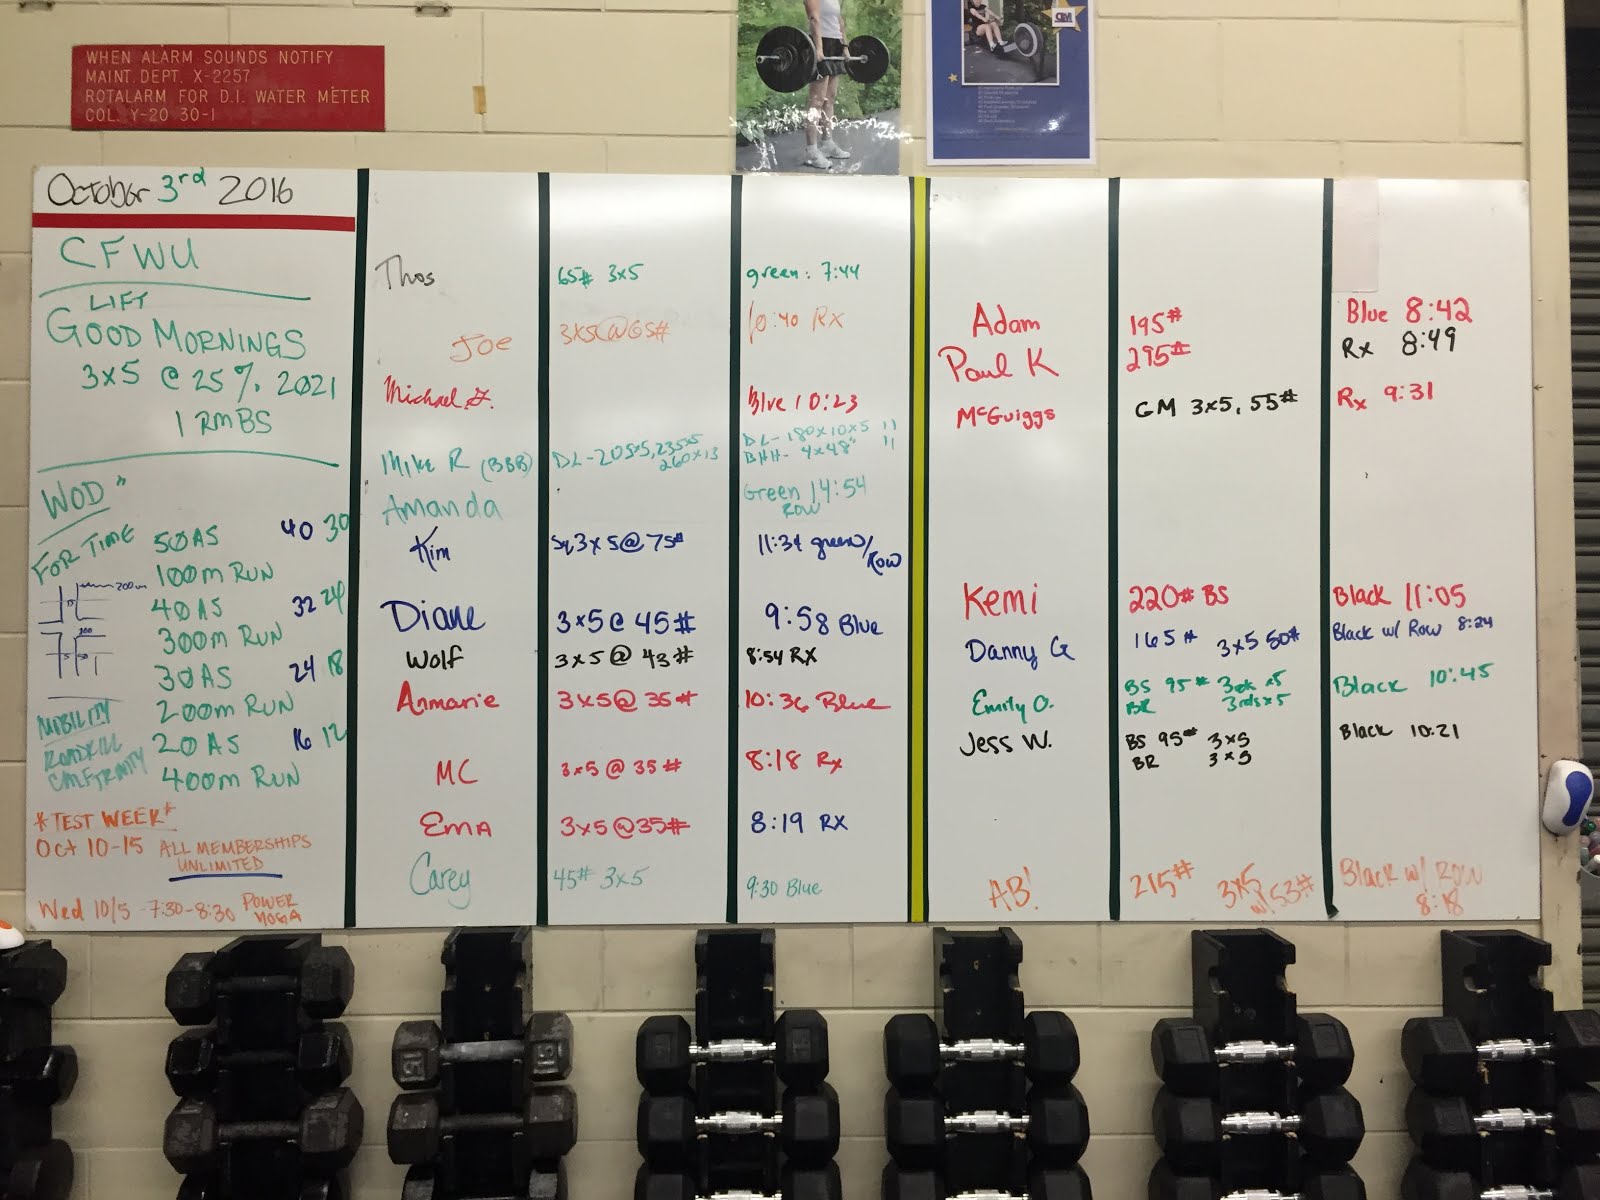 WHEN ALARM SOUNDS NOTIFY
MAINT. DEPT. X-2257
ROTALARM FOR D.I. WATER METER
COL. Y-20 30-1
October 3rd 2016
CFWU
LIFT
GOOD MORNINGS
3x5 @ 25% 2021
1 RM BS
WOD"
FOR TIME
50 AS 40 30
100m RUN
200m
40 AS 32 24
300m RUN
30 AS 24 18
200m RUN
20 AS 16 12
400m RUN
MOBILITY
ROADKILL
*TEST WEEK*
Oct 10-15 ALL MEMBERSHIPS
UNLIMITED
Wed 10/5 -7:30-8:30 POWER
YOGA
Thos 65# 3x5 green: 7:44
Joe 3x5@65# 10:40 Rx
Michael F. Blue 10:23
Mike R (BBB) DL-205x5, 235x5
260x13
DL-180x10x5
BHH- 4x48"
Amanda Green 14:54
ROW
Kim 3x5@75# 11:34 green/
Row
Diane 3x5@ 45# 9:58 Blue
Wolf 3x5@ 43# 8:54 RX
Anmarie 3x5@ 35# 10:36 Blue
MC 3x5 @ 35# 8:18 Rx
EmA 3x5@35# 8:19 RX
Carey 45# 3x5 9:30 Blue
Adam 195# Blue 8:42
Paul K 295# Rx 8:49
McGuiggs GM 3x5, 55# Rx 9:31
Kemi 220# BS Black 11:05
Danny G 165# 3x5 50# Black w/ Row 8:24
Emily O. BS 95# 3rds x5 Black 10:45
BR 3rds x5
Jess W. BS 95# 3x5 Black 10:21
BR 3x5
AB! 215# 3x5 Black w/ ROW
w/ 53# 8:18